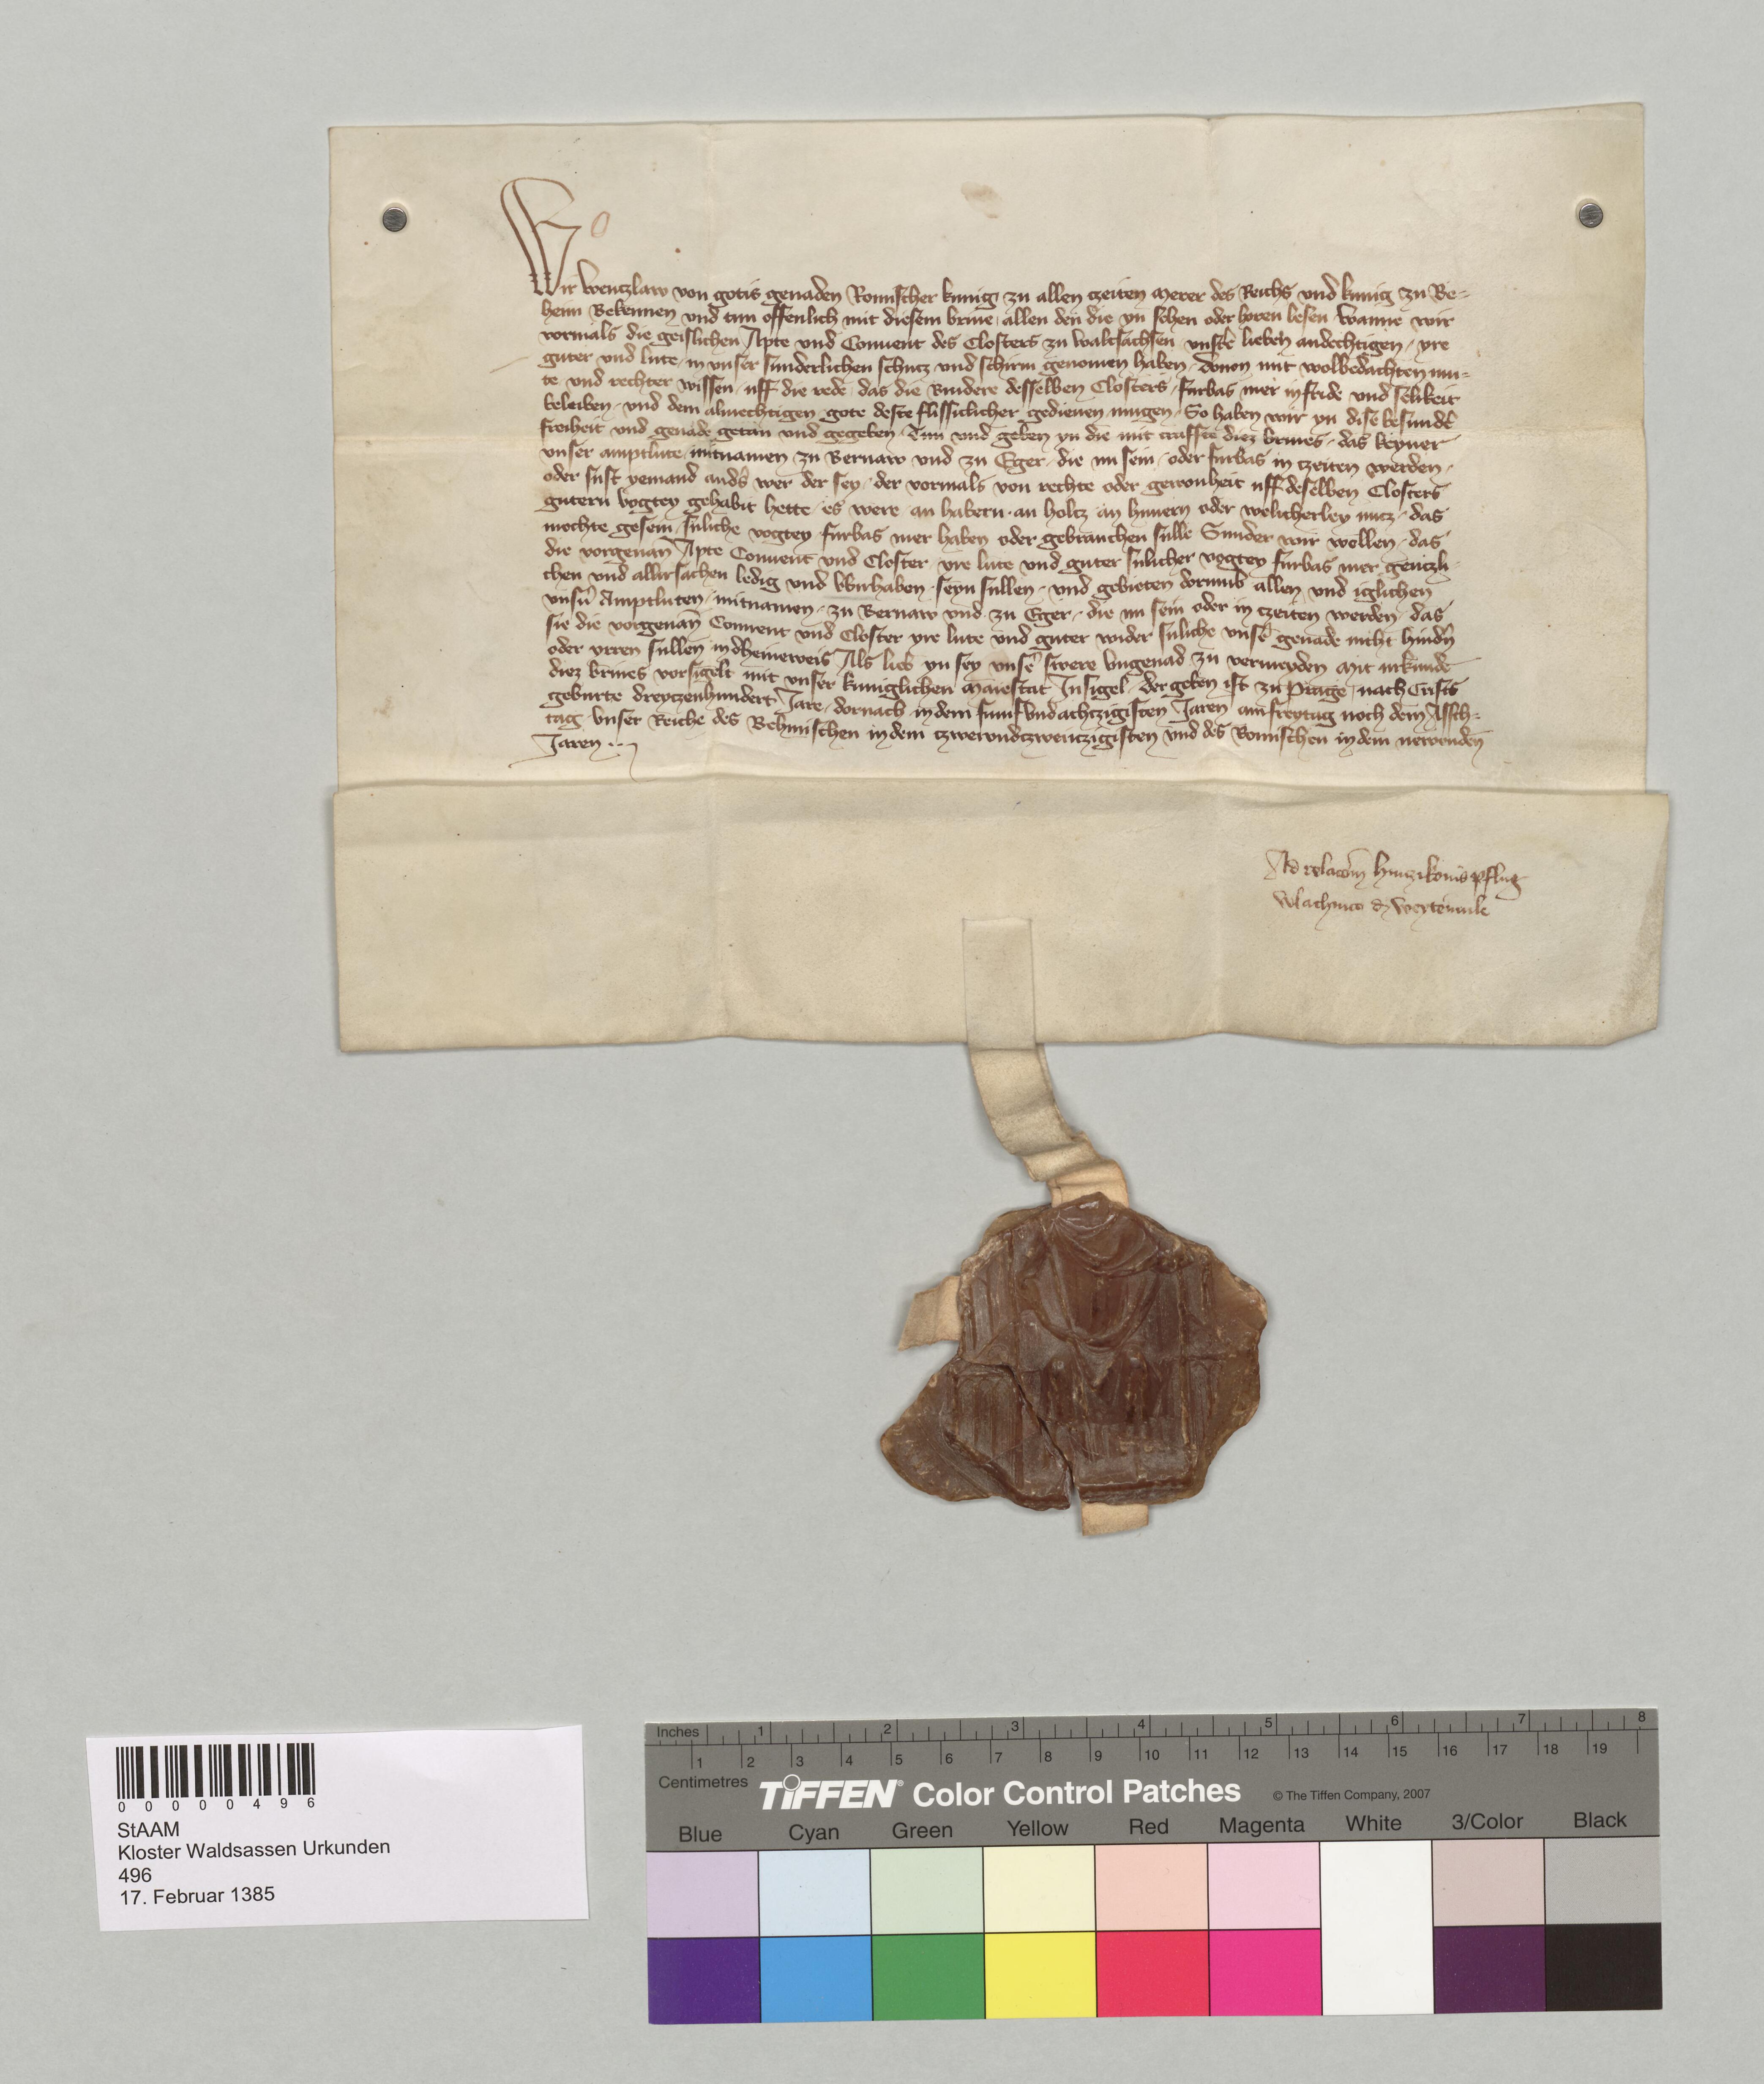 Wir Wenczlaw von gotis genaden Romischer kunig zu allen czeiten merer des Reichs vnd kunig zu Be-
heim Bekennen vnd tun offenlich mit diesem briue allen den die yn sehen oder horen lesen Wanne wir
vormals die geislichen Apte vnd Conuent des Closters zu Waltsachsen vnsere lieben andechtigen yre
guter vnd lute in vnser sunderlichen schucz vnd schirm genomen haben douon mit wolbedachten mu-
te vnd rechter wissen uff die rede das die Brudere desselben Closters furbas mer in fride vnd selikeit
beleiben vnd dem almechtigen gote deste flissiclicher gedienen mugen So haben wir yn dise besundere
freiheit vnd genade getan vnd gegeben Tun vnd geben yn die mit craffte diez briues das keyner
vnser amptlute mitnamen zu Bernaw vnd zu Eger die nu sein oder furbas in czeiten werden
oder sust yemand anders wer der sey der vormals von rechte oder gewonheit uff deselben Closters
gutern vogtey gehabit hette es were an habern an holtz an hunern oder welicherley nucz das
mochte gesein suliche vogtey furbas mer haben oder gebrauchen sulle Sunder wir wollen das
die vorgenan Apte Conuent vnd Closter yre lute vnd guter sulicher vogtey furbas mer genczli-
chen vnd allirsachen ledig vnd vberhaben seyn sullen vnd gebieten dorumb allen vnd iglichen
vnsern Amptluten mitnamen zu Bernaw vnd zu Eger die nu sein oder in czeiten werden das
sie die vorgenan Conuent vnd Closter yre lute vnd guter wider suliche vnsere genade nicht hindern
oder yrren sullen in dheineweis Als lieb yn sey vnsere swere vngenad zu vermeyden Mit urkunde
diez briues vorsigelt mit vnser kuniglichen Maiestat Insigel der geben ist zu Prage nach Crists
geburte dreyczenhundert Jare dornach in dem funfvndachtzigisten Jaren am freytag noch dem Assch-
tag vnser Reiche des Behmischen in dem czweivndczwenczigisten vnd des Romischen in dem newenden
Jaren
Ad relacōm
Wlachnico de Weytemule
0000496
StAAM
Kloster Waldsassen Urkunden
496
17. Februar 1385
Inches 1 2 3 4 5 6 7 8
1 2 3 4 5 6 7 8 9 10 11 12 13 14 15 16 17 18 19
Centimetres
TIFFEN® Color Control Patches © The Tiffen Company, 2007
Blue Cyan Green Yellow Red Magenta White 3/Color Black